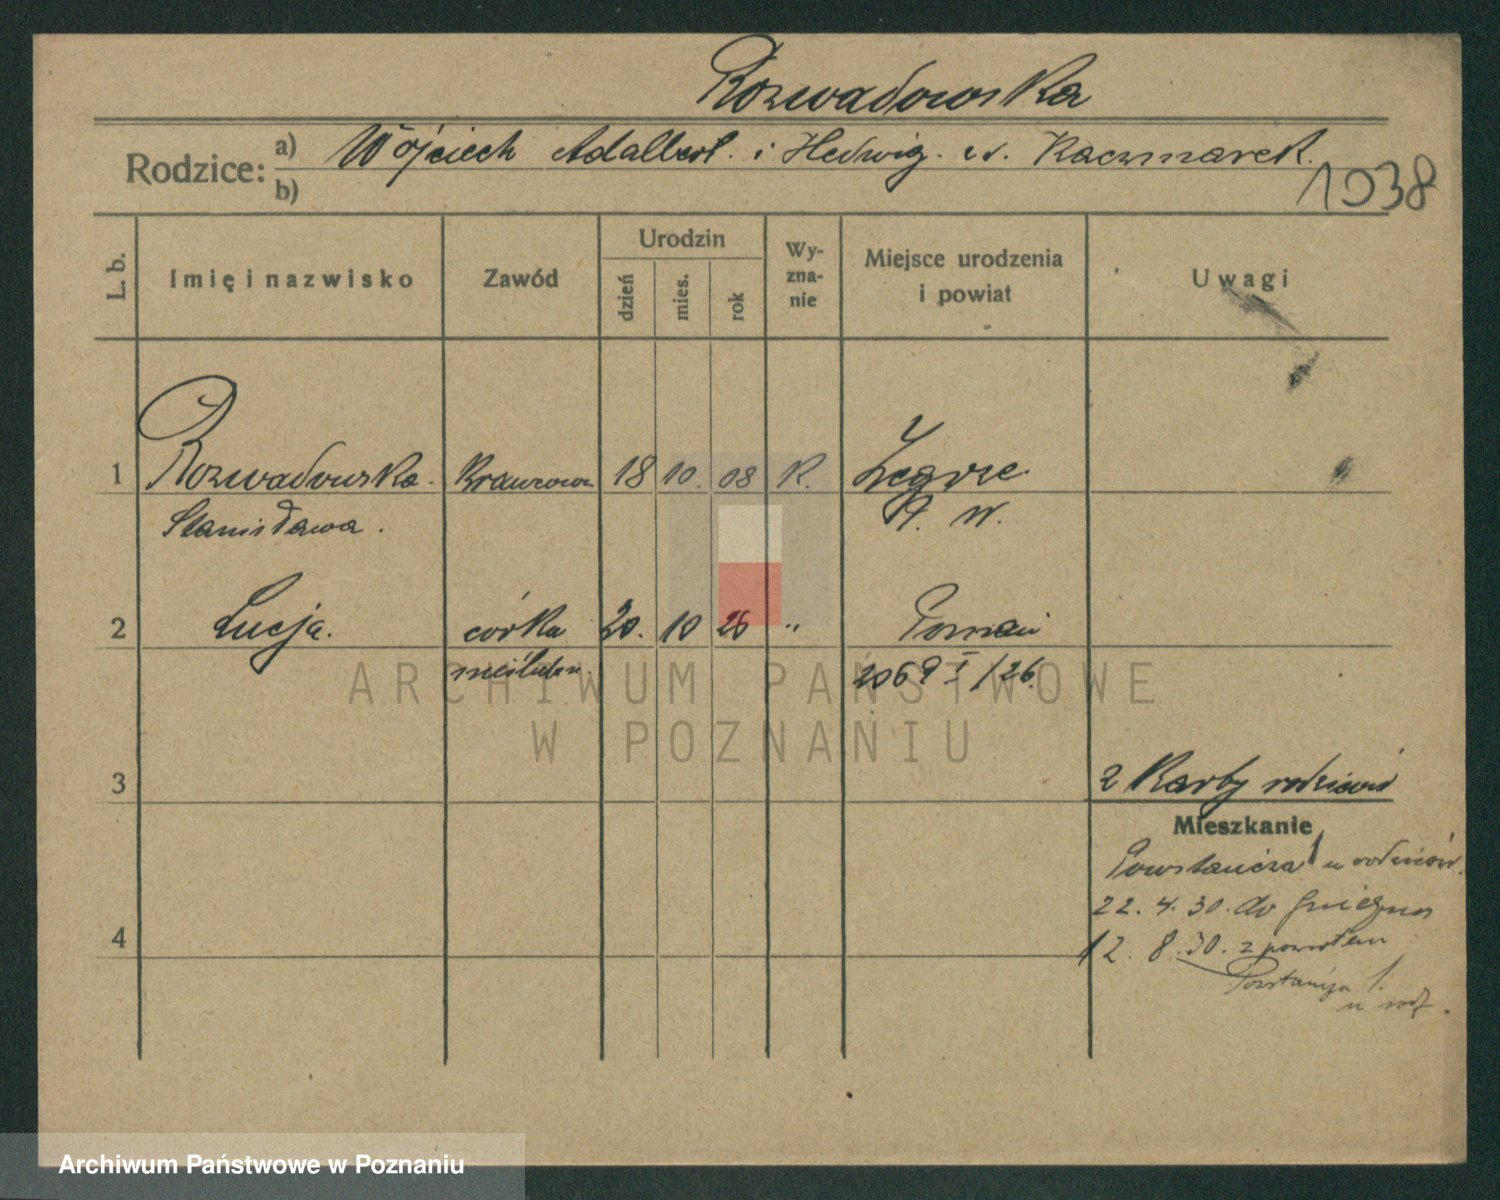 Rozwadowska
Rodzice: a) Wojciech Adalbert. i Hedwig. z d. Kaczmarek.
b)
1938
L. b.
Imię i nazwisko
Zawód
Urodzin
dzień
mies.
rok
Wy-
zna-
nie
Miejsce urodzenia
i powiat
Uwagi
1 Rozwadowska. Krawcowa 18 10. 08 K. Żegrze
Stanisława. P. W.
2 Łucja. córka 20. 10 26 " Poznań
nieślubna. 2069 I/26.
3 2 Karty rodziców
Mieszkanie
Powstańcza 1 u rodziców.
22. 4. 30. do Gniezna
4
12. 8. 30. z powrotem
1.
u rodz.
ARCHIWUM PAŃSTWOWE
W POZNANIU
Archiwum Państwowe w Poznaniu